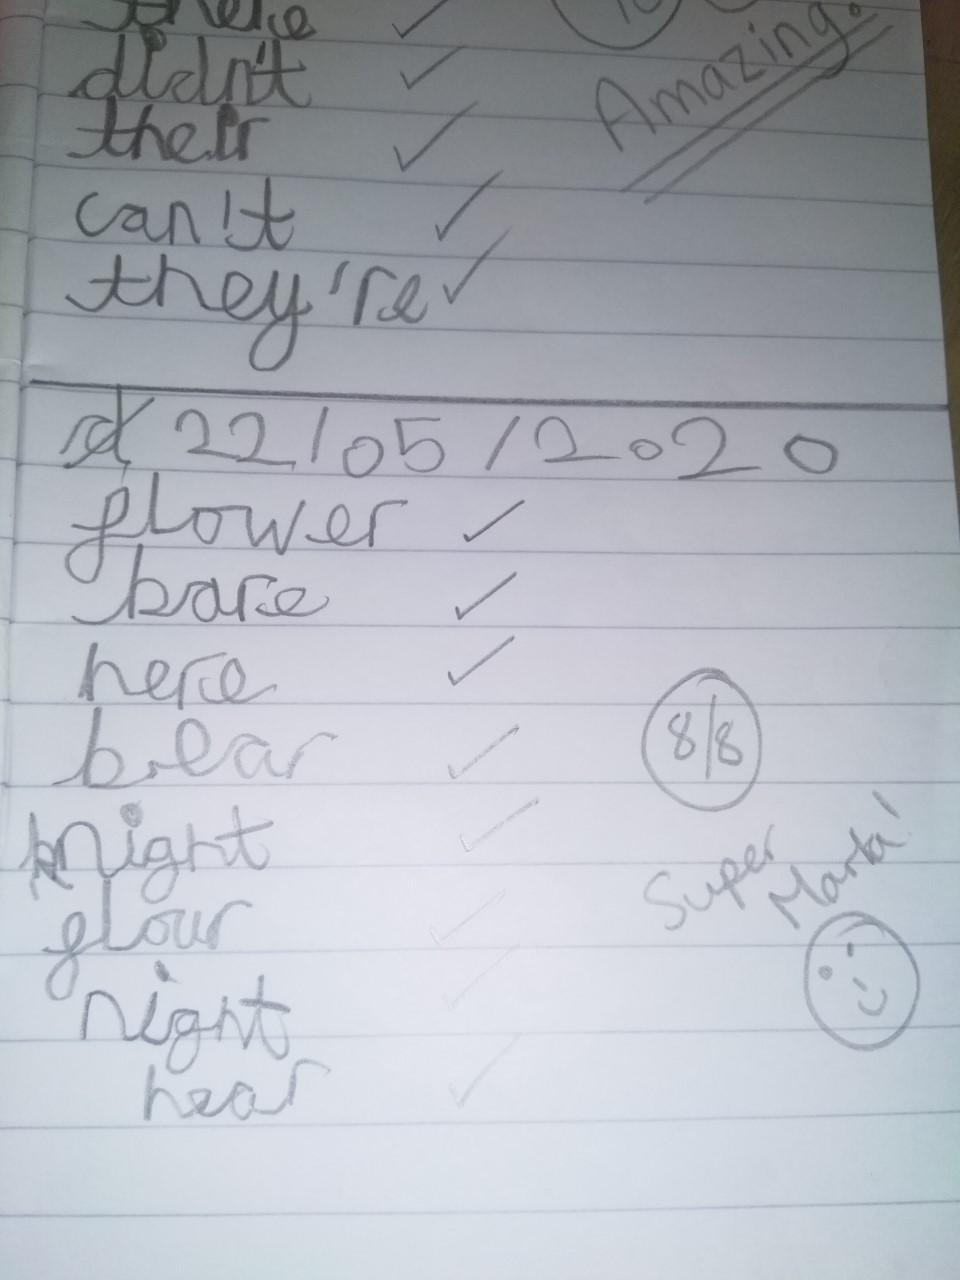 there
didn't
Amazing.
their
can't
they're
22/05/2020
flower
bare
here
bear
8/8
knight
Super Marta!
flour
night
hear